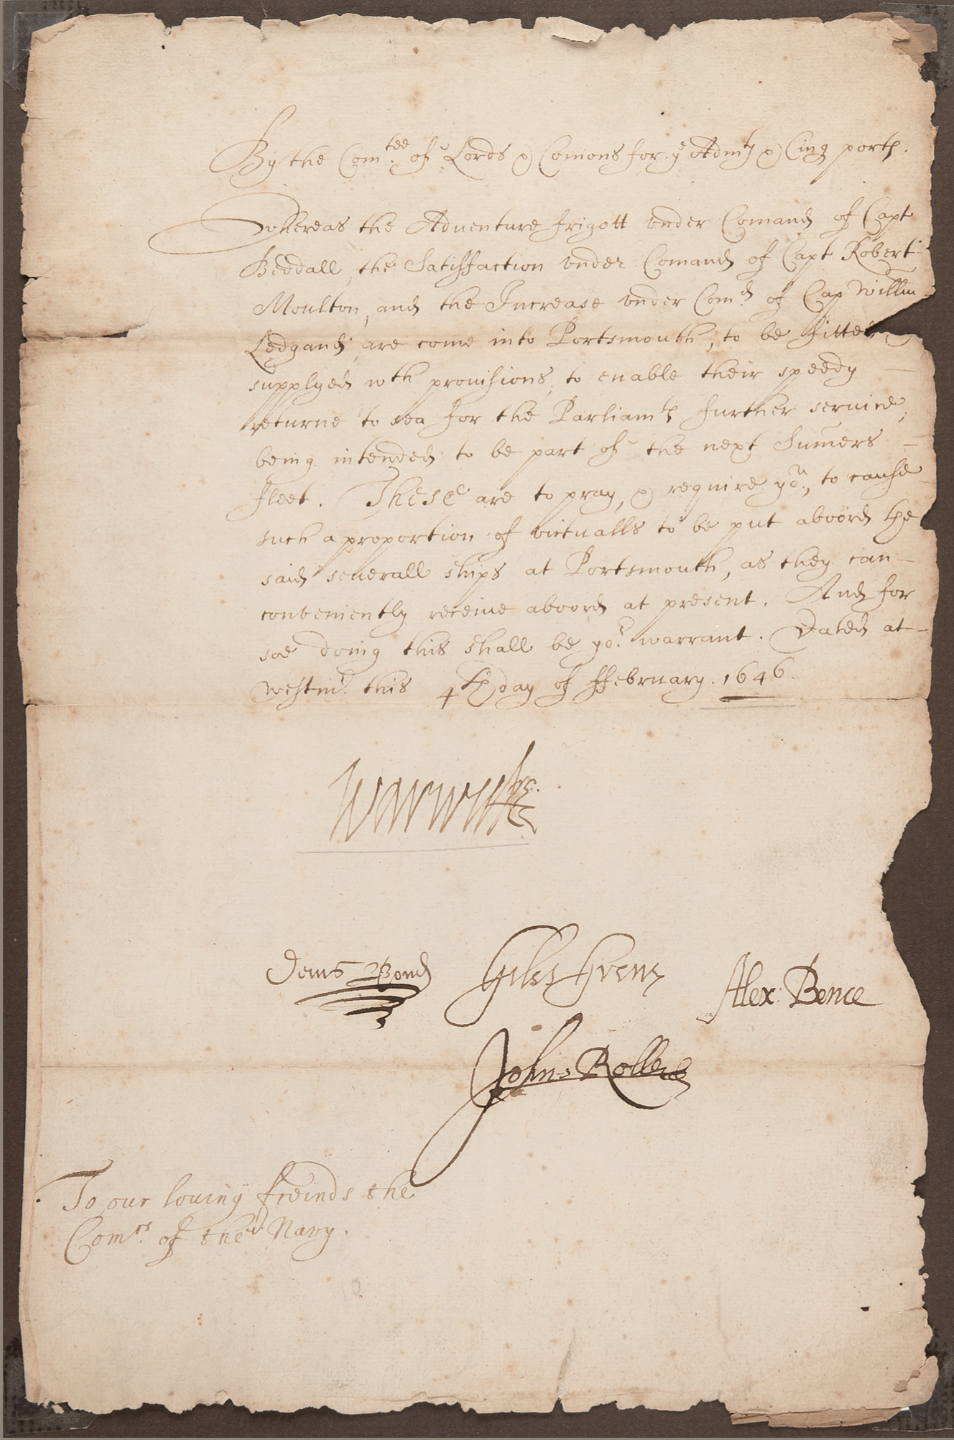 By the Com:tee of Lords & Comons for ye Admty & Cinq ports.
Whereas the Aduenture frigott vnder Comand of Capt
Beddall, the Satisfaction vnder Comand of Capt Robert
Moulton, and the Increase vnder Comd of Cap Willm
Ledgand, are come into Portsmouth, to be fitted &
supplyed wth prouisions, to enable their speedy
returne to sea for the Parliamts further seruice,
being intended to be part of the next Sumers
fleet. These are to pray, & require you, to cause
such a proportion of victualls to be put aboord the
said seuerall ships at Portsmouth, as they can
conveniently receiue aboord at present. And for
soe doing this shall be yor warrant. Dated at
Westmr. this 4th day of ffebruary. 1646.
Warwick
Denis Bond Giles Grene Alex: Bence
John Rolle
To our louing freinds the
Comrs. of the Navy.